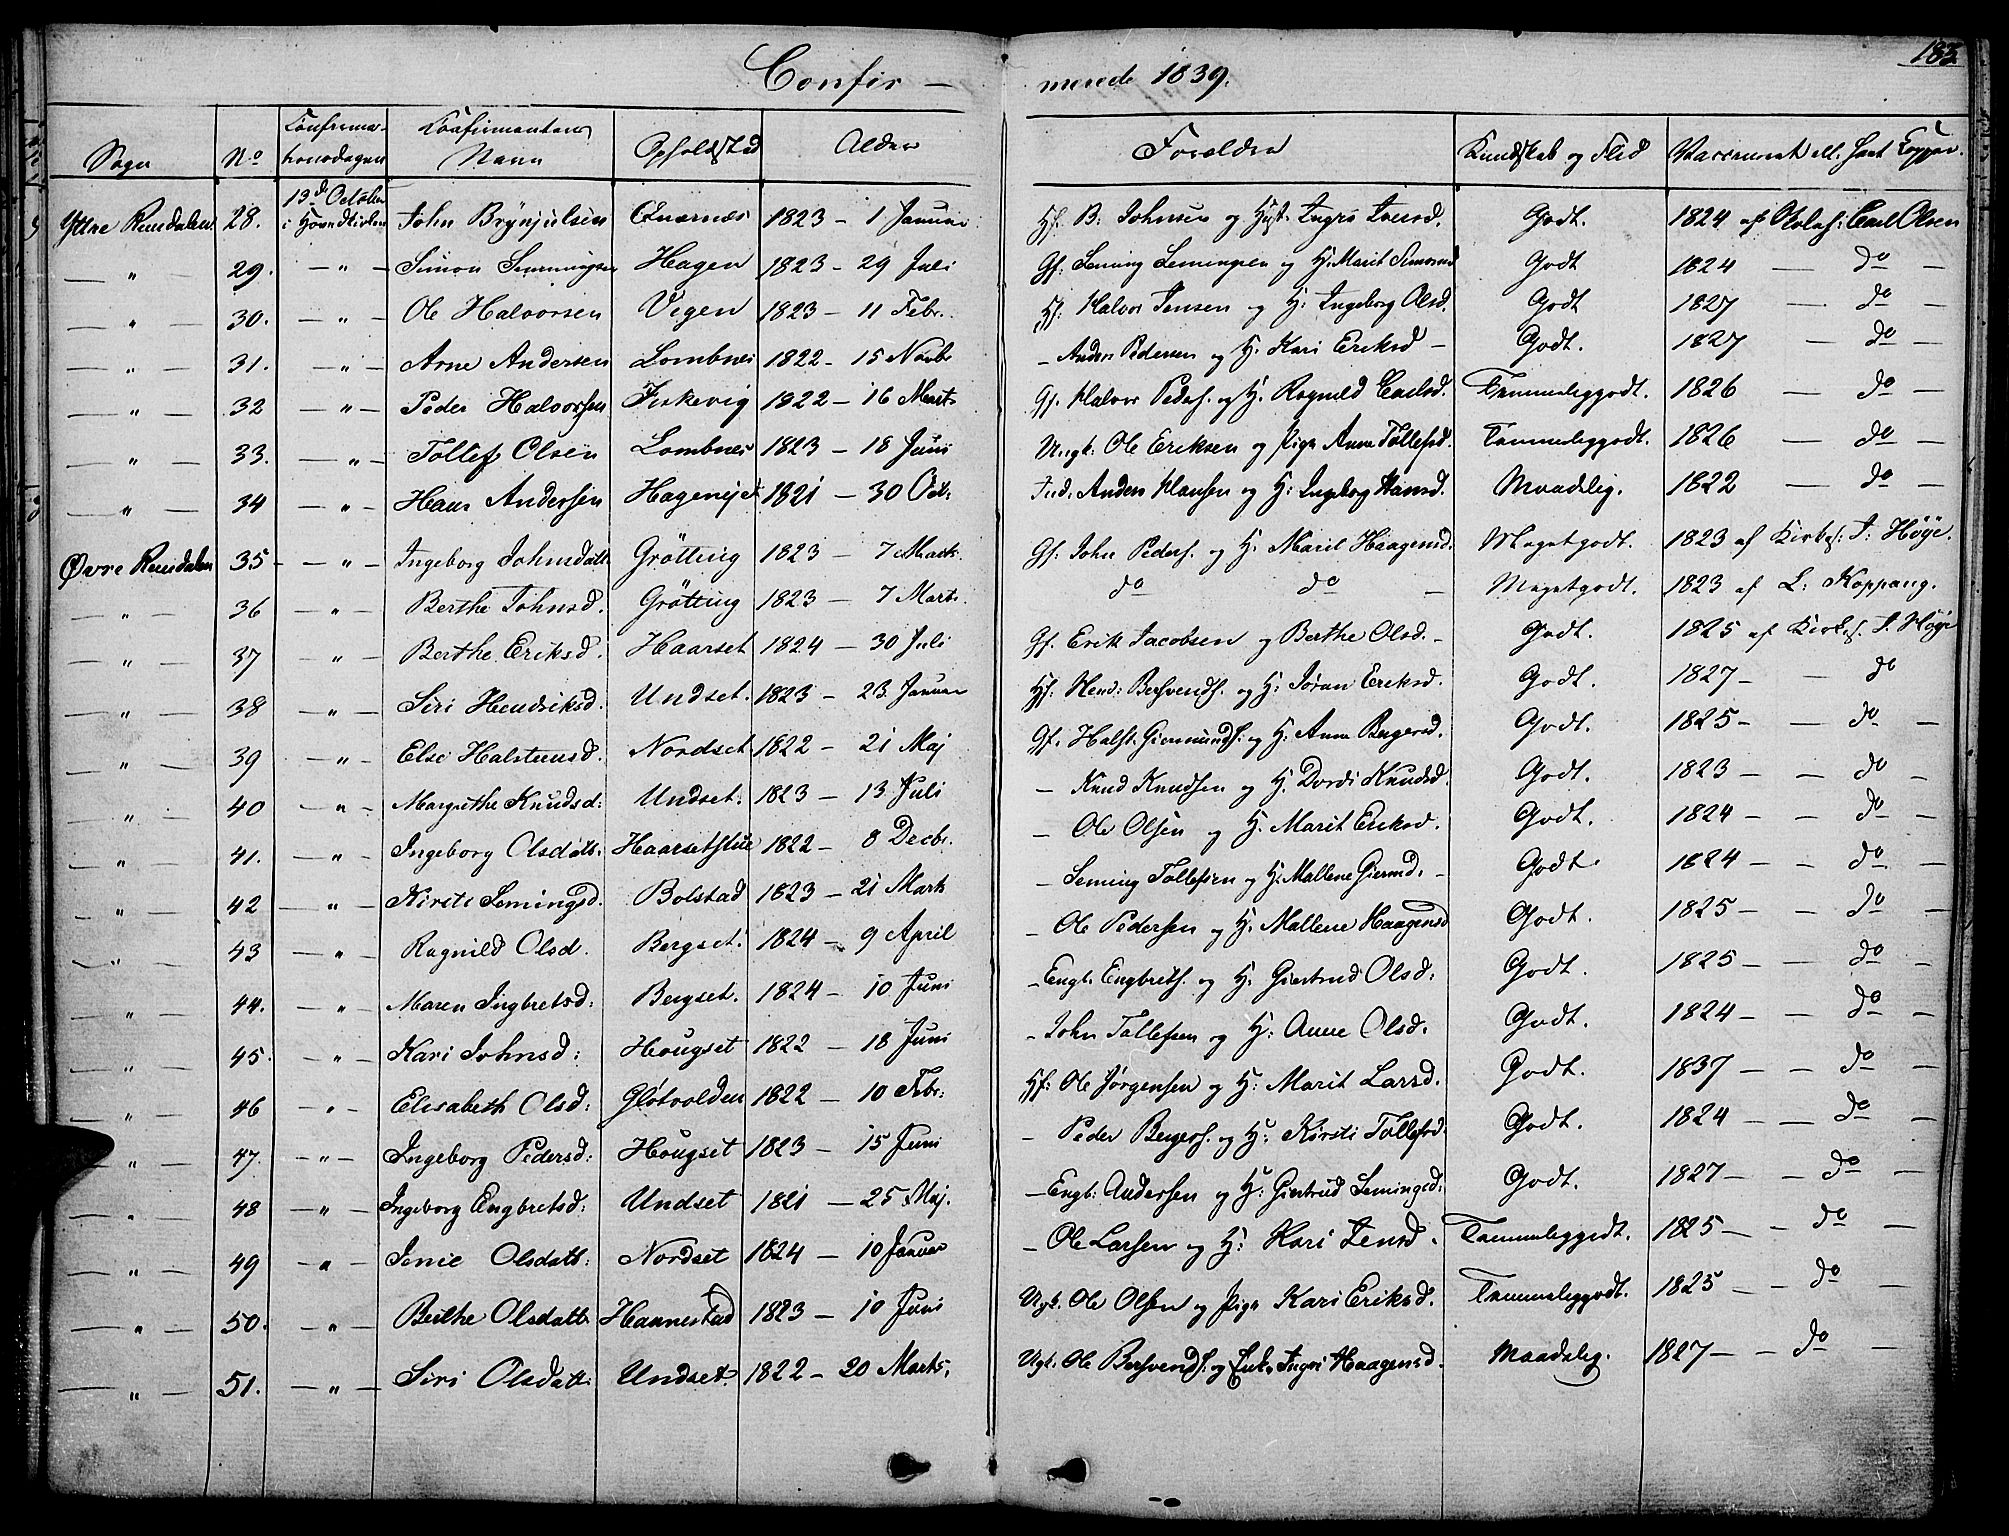 183
Confir — merede 1839.
Sogn No Confirmationsdagen Confirmantens Navn Opholdsted Alder Forældre Kundskab og Flid Vaccineret ell. havt Kopper.
Yttre Rendalen 28. 13de October i Hovedkirken John Brynjulsen Qværnæs 1823 – 1 Januar Hf. B. Johnsen og Hust. Ingri Iversd. Godt. 1824 af Carl Olsen
— " — 29. — " — Simon Semmingsen Hagen 1823 – 29 Juli Gf: Seming Semingsen og H: Marit Simonsd Godt 1824 — do —
— " — 30. — " — Ole Halvorsen Vegen 1823 – 11 Febr. Hf: Halvor Jensen og H: Ingeborg Olsd. Godt 1827 — do —
— " — 31. — " — Arne Andersen Lombnes 1822 – 15 Novbr – Anders Pedersen og H. Kari Eriksd – Godt. 1827 — do —
— " — 32 — " — Peder Halvorsen Fiskevig 1822 – 16 Marts Gf. Halvor Peders. og H. Ragnild Carlsd. Temmeliggodt. 1826 — do —
— " — 33. — " — Tollef Olsen Lombnes 1823 – 18 Juni Ungk: Ole Eriksen og Pige Anne Tollefsd. Temmeliggodt. 1826 — do —
— " — 34 — " — Hans Andersen Hagenejet 1821 – 30 Oct: Ind. Anders Hansen og H: Ingeborg Hansd. Maadelig. 1822 — do —
Øvre Rendalen 35 — " — Ingeborg Johnsdatt. Grötting 1823 – 7 Marts. Gf: John Peders. og H. Marit Haagensd. Megetgodt. 1823 af Kirkes: I: Høye.
— " — 36 — " — Berthe Johnsd. Grötting 1823 – 7 Marts. do do — Megetgodt. 1823 af L: Koppang.
— " — 37 — " — Berthe Eriksd. Haarset 1824 – 30 Juli Gf. Erik Jacobsen og Berthe Olsd. – Godt. 1825 af Kirkes. I. Høye
— " — 38 — " — Siri Hendriksd. Undset. 1823 – 23 Januar Hf: Hend: Bersvends. og H: Jøran Eriksd. Godt. 1827 – – do
— " — 39 — " — Else Halstensd. Nordset 1822 – 21 Maj Gf. Halst. Giermunds. og H: Anne Bergersd. Godt. 1825 – – do –
— " — 40 — " — Margrethe Knudsd: Undset. 1823 – 13 Juli – Knud Knudsen og H. Dordi Knudsd. Godt. 1823 – – do –
— " — 41. — " — Ingeborg Olsdatt: Haarsetstue 1822 – 8 Decbr. – Ole Olsen og H. Marit Eriksd. Godt. 1824 – – do –
— " — 42 — " — Kirsti Semingsd. Bolstad 1823 – 21 Marts – Seming Tollefsen og H. Mallene Giermd. – Godt. 1824 – – do –
— " — 43 — " — Ragnild Olsd. Bergset. 1824 – 9 April – Ole Pedersen og H. Mallene Haagensd Godt. 1825 – – do –
— " — 44. — " — Maren Ingbretsd: Bergset. 1824 – 10 Juni – Engb. Engbrets. og H. Giertrud Olsd. Godt. 1825 – – do –
— " — 45. — " — Kari Johnsd: Hougset 1822 – 18 Juni – John Tollefsen og H: Anne Olsd. Godt. 1824 – – do –
— " — 46 — " — Elisabeth Olsd: Gløtvolden 1822 – 10 Febr: Hf: Ole Jørgensen og H: Marit Larsd. Godt. 1837 – – do –
— " — 47. — " — Ingeborg Pedersd: Hougset 1823 – 15 Juni – Peder Bergers. og H: Kirsti Tollefsd. Godt. 1824 – – do –
— " — 48 — " — Ingeborg Engbretsd: Undset 1821 – 25 Maj. – Engb: Andersen og H: Giertrud Semingsd: Godt. 1827 – – do –
— " — 49 — " — Olsdatt: Nordset 1824 – 10 Januar – Ole Larsen og H: Kari Jensd. Temmeliggodt. 1825 – – do –
— " — 50. — " — Berthe Olsdatt. Hannestad 1823 – 10 Juni Ugk. Ole Olsen og Pige Kari Eriksd. Temmeliggodt. 1825 – – do –
— " — 51. — " — Siri Olsdatt: Undset 1822 – 20 Marts. Ugk: Ole Bersvends. og Enke Ingri Haagensd. Maadelig. 1827 – – do –